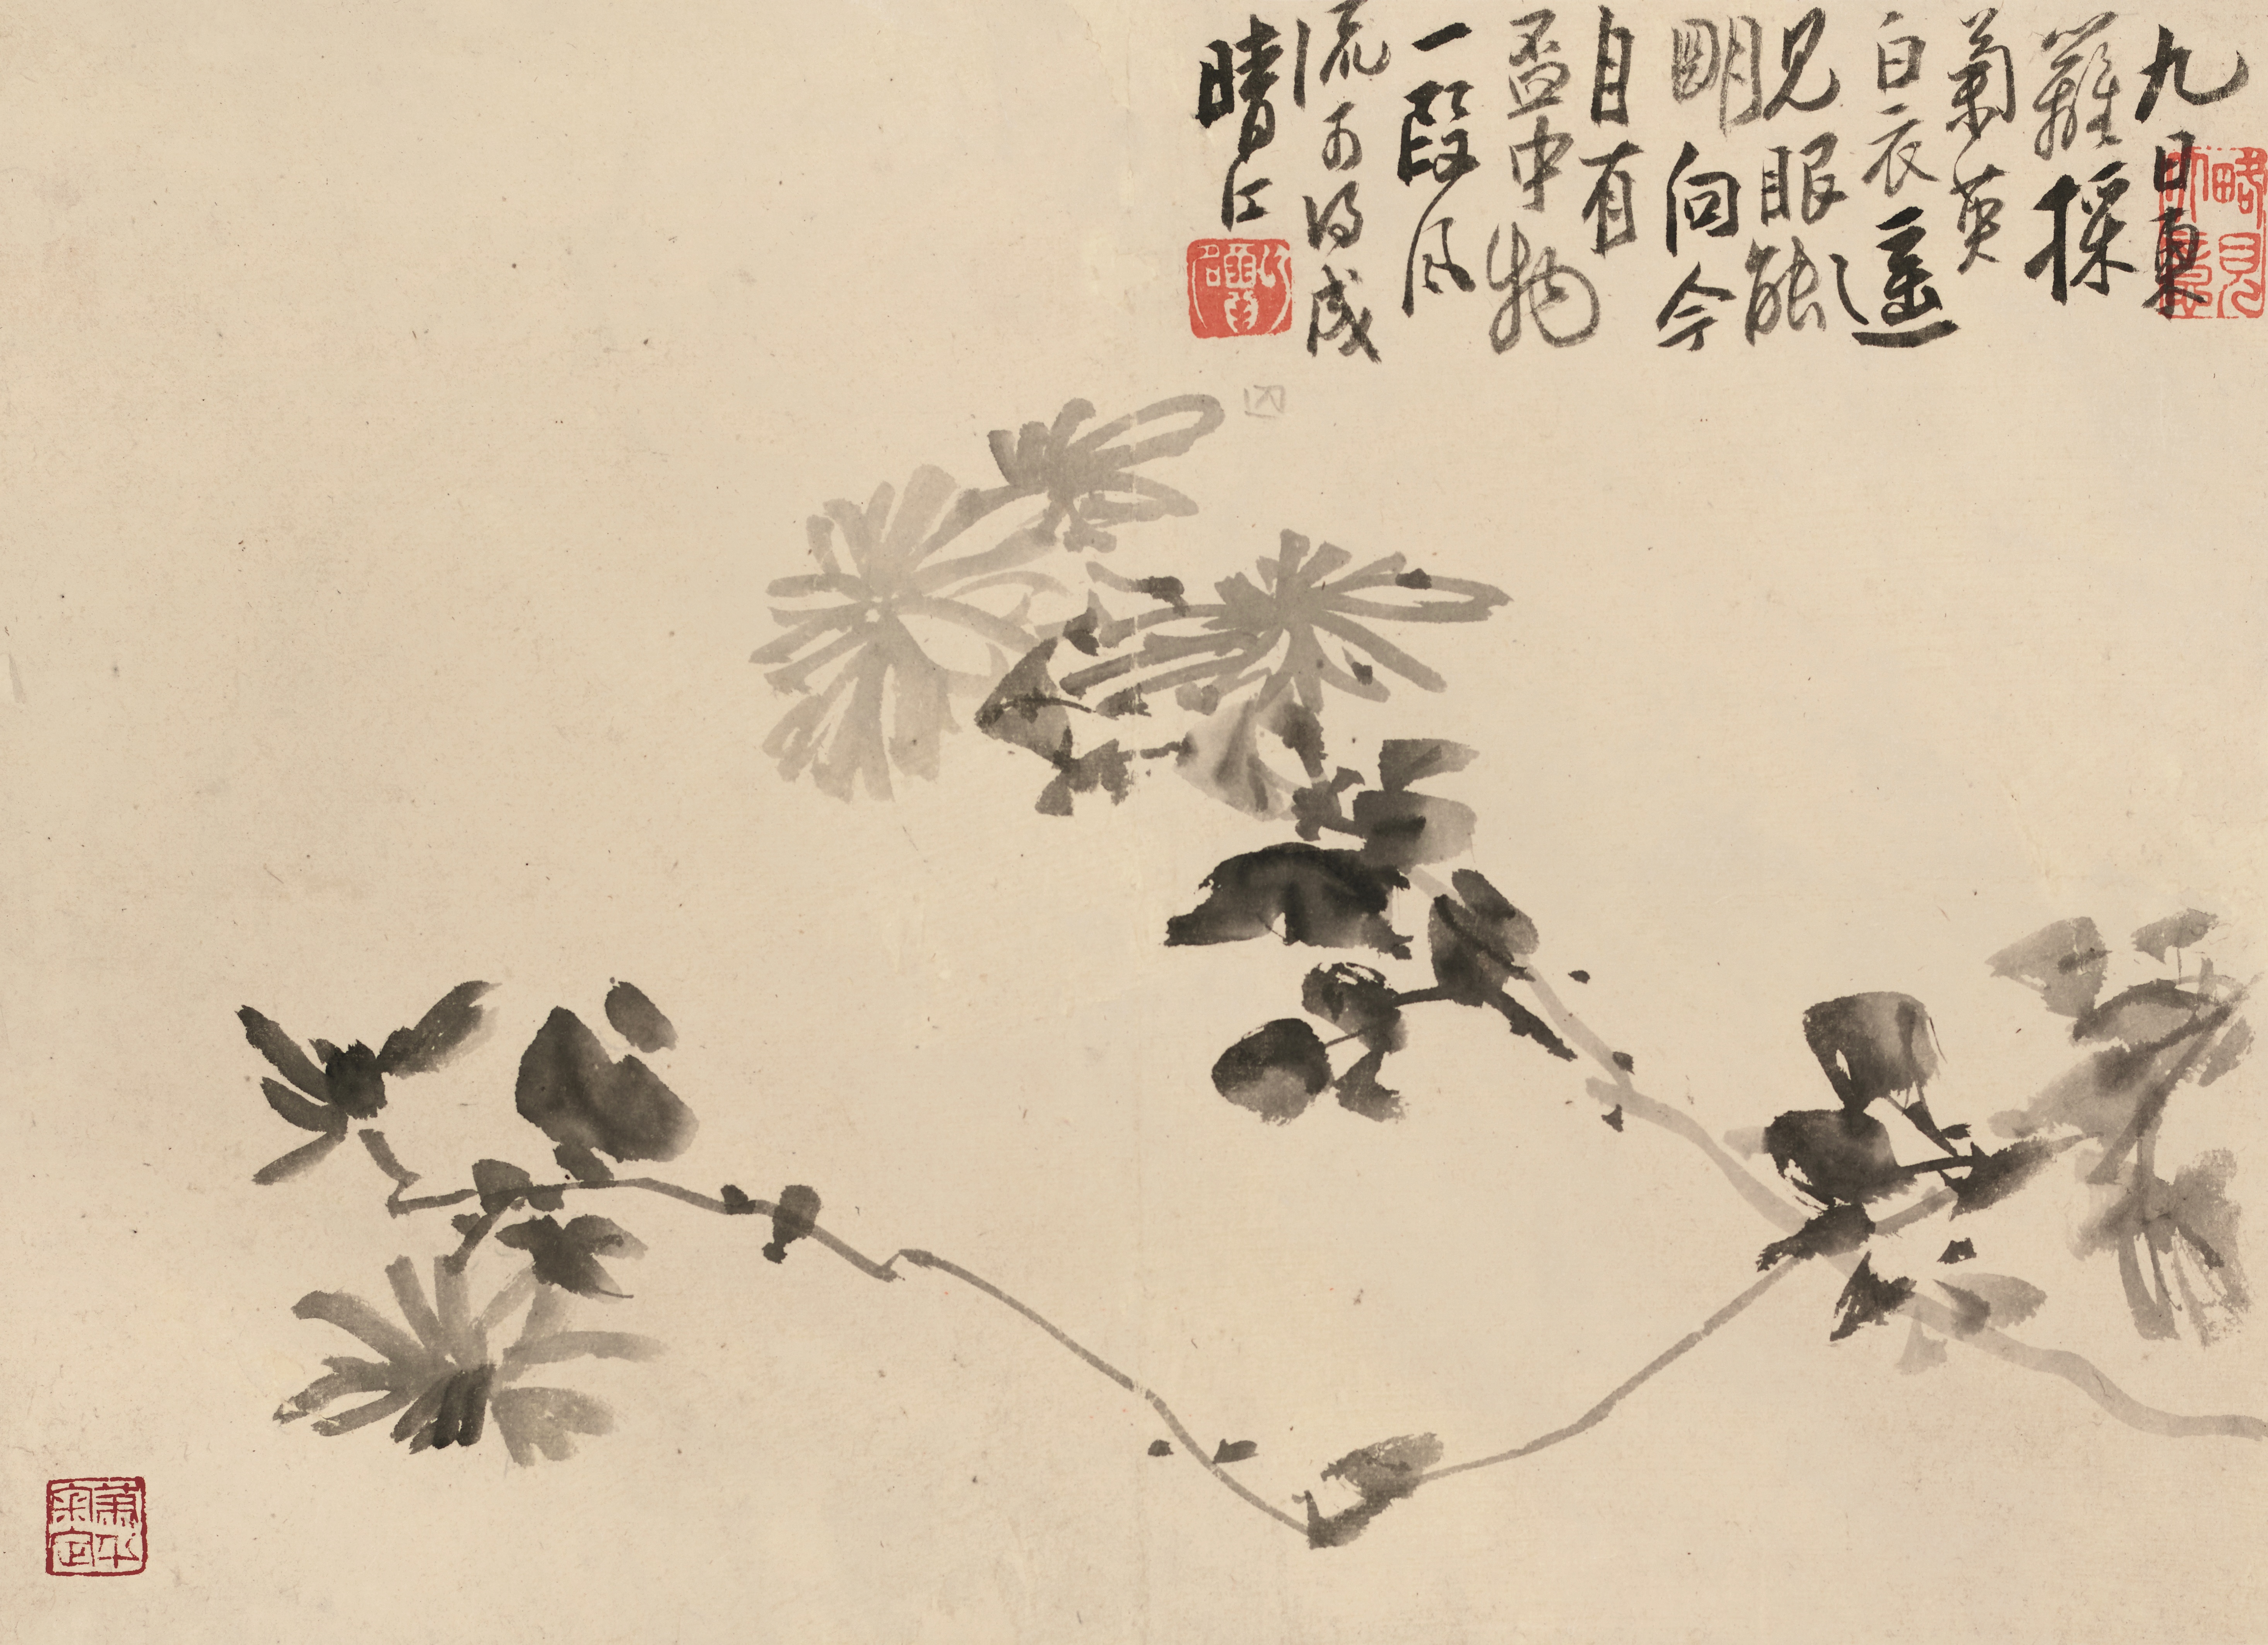 九日東
籬採
菊英
白衣遥
見眼能
明向今
自有
盃中物
一段風
流可得成
晴江
蕭平
審定